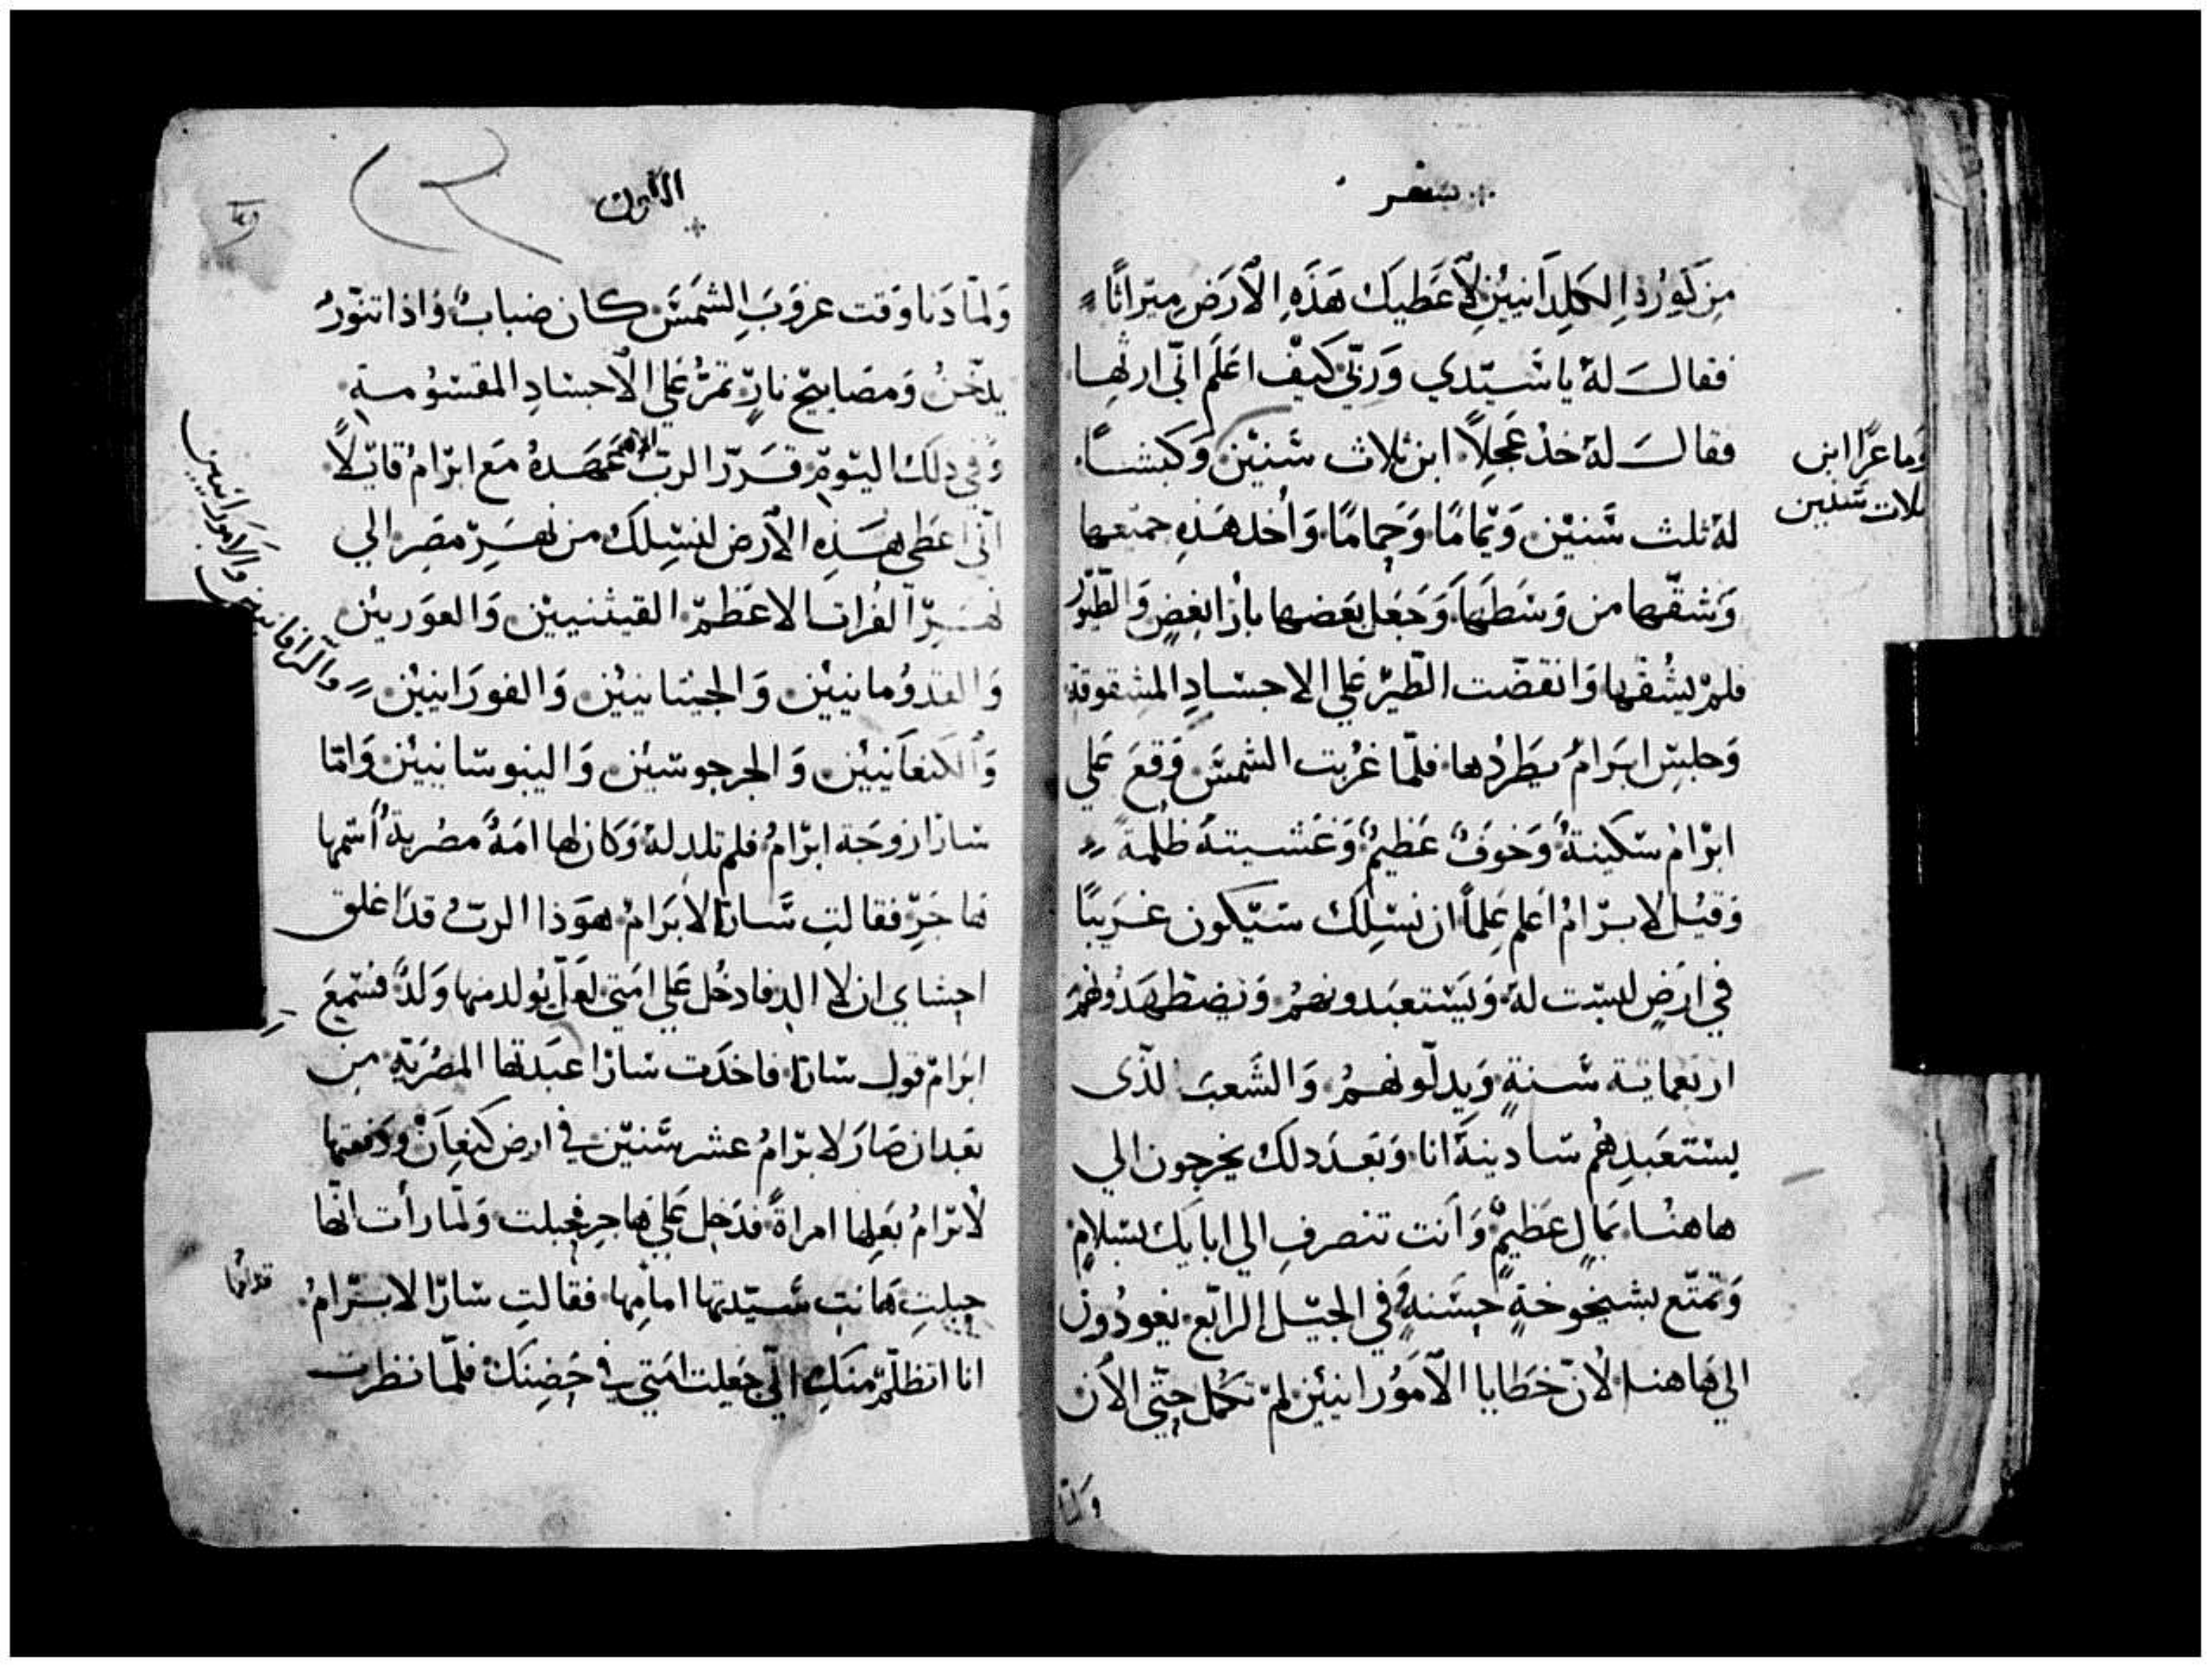 سفر
من كورة الكلدانيين لأعطيك هذه الارض ميراثًا
فقال له يا سيدي وربي كيف اعلم اني ارثها
فقال له خذ عجلاً ابن ثلاث سنين وكبشا
وماعزًا ابن
ثلاث سنين
له ثلث سنين ويمامًا وحمامًا وأخذ هذه جميعها
وشقها من وسطها وجعل بعضها بازا بعض والطيور
فلم يشقها وانقضت الطير علي الاجساد المشقوقة
وجلس ابرام يطردها فلما غربت الشمس وقع علي
ابرام سكينة وخوف عظيم وغشيته ظلمة
وقيل لابرام أعلم علماً ان نسلك سيكون غريبًا
في ارض ليست له ويستعبدونهم ويضطهدونهم
اربعماية سنة ويدلونهم والشعب الذي
يستعبدهم سادينه انا وبعد دلك يخرجون الي
هاهنا بمال عظيم وانت تنصرف الي ابايك بسلام
وتمتع بشيخوخة حسنة وفي الجيل الرابع يعودون
الي هاهنا لأن خطايا الأمورانيين لم تكمل حتى الأن
ولما
الاول
ولما دنا وقت غروب الشمس كان ضباب واذا تنور
يدخن ومصابيح نار تمر علي الأجساد المقسومة
وفي دلك اليوم قرر الرب الاله عهده مع ابرام قايلاً
أني اعطي هذه الأرض لنسلك من نهر مصر الي
نهر الفرات الاعظم القينيين والعوريين
والقدومانيين والجيتانيين والفورانيين
والرافانيين والامورانيين
والكنعانيين والجرجوسيين واليبوسانيين واما
سارا زوجة ابرام فلم تلد له وكان لها امة مصرية أسمها
هاجر فقالت سارا لابرام هوذا الرب قد اغلق
احشاي ان لا الد فادخل علي امتي لعل يولد منها ولد فسمع
ابرام قول سارا فاخذت سارا عبدتها المصرية من
بعد ان صار لابرام عشر سنين في ارض كنعان ودفعتها
لأبرام بعلها امراة فدخل علي هاجر فحبلت ولما رأت انها
حبلت هانت سيدتها امامها فقالت سارا لابرام
قدامها
انا اتظلم منك اني جعلت امتي في حضنك فلما نظرت